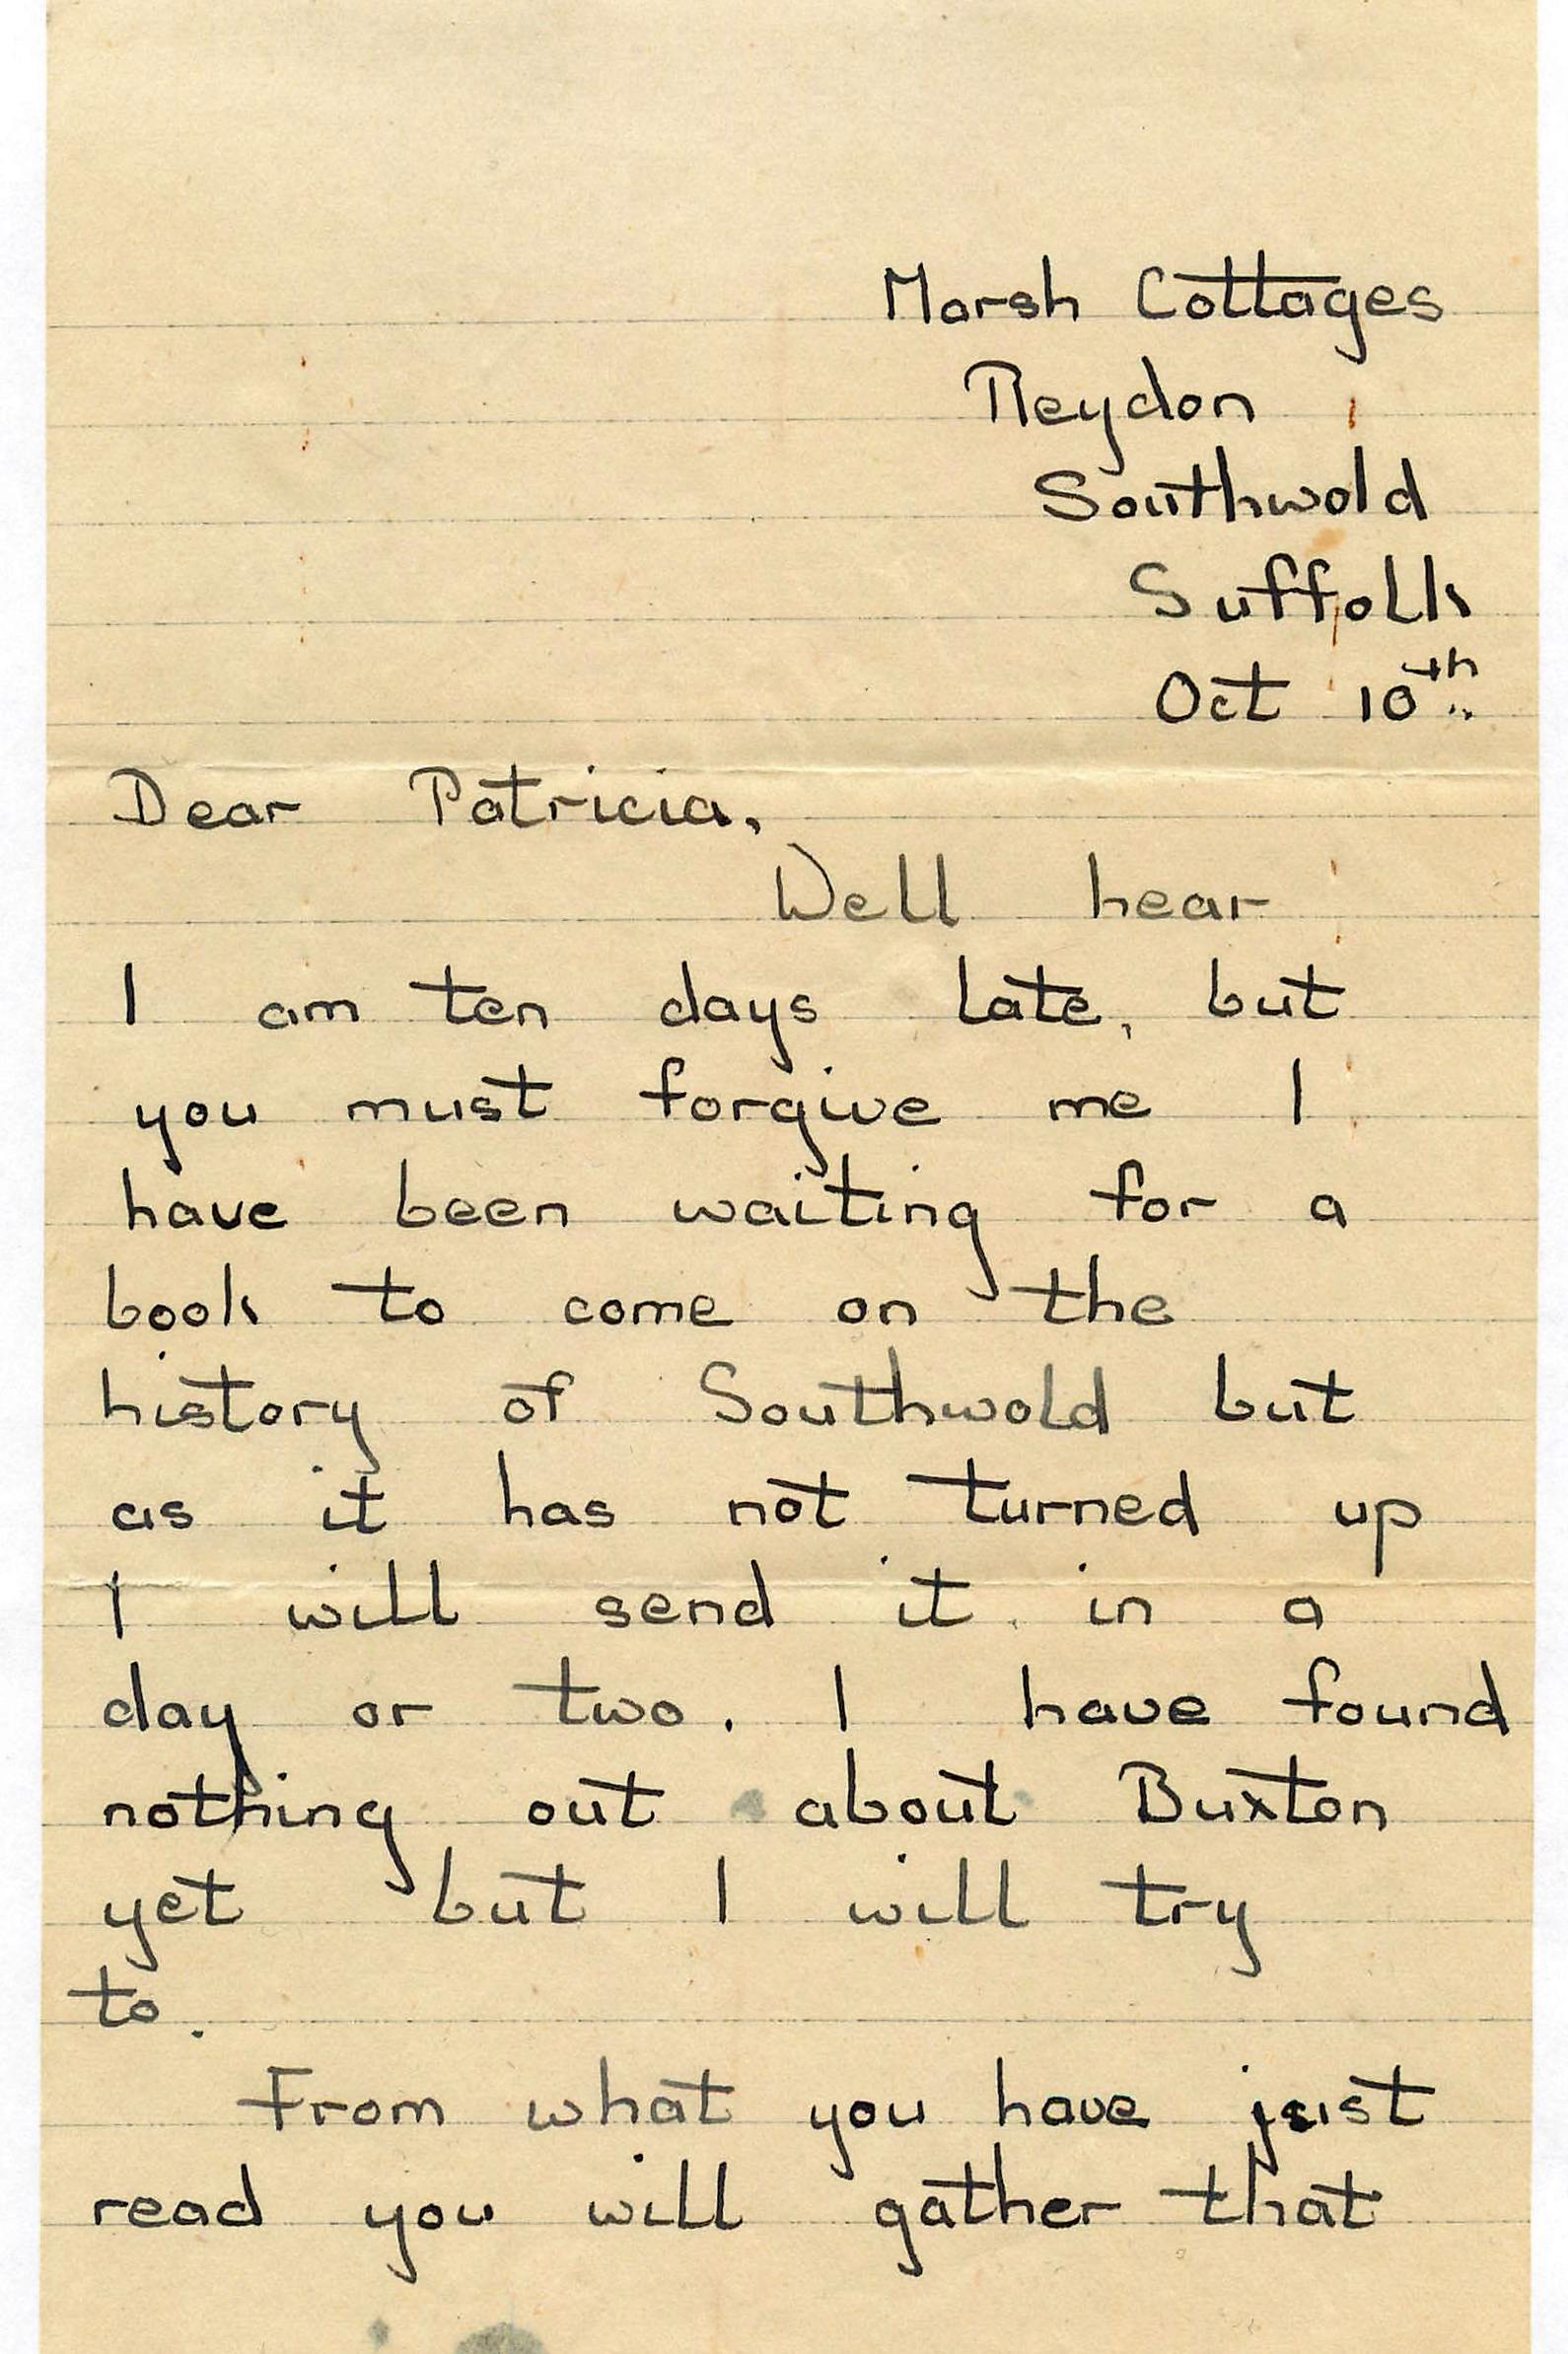 Marsh Cottages
Reydon
Southwold
Suffolk
Oct 10th
Dear Patricia,
Well hear
I am ten days late, but
you must forgive me I
have been waiting for a
book to come on the
history of Southwold but
as it has not turned up
I will send it in a
day or two. I have found
nothing out about Buxton
yet but I will try
to.
From what you have just
read you will gather that